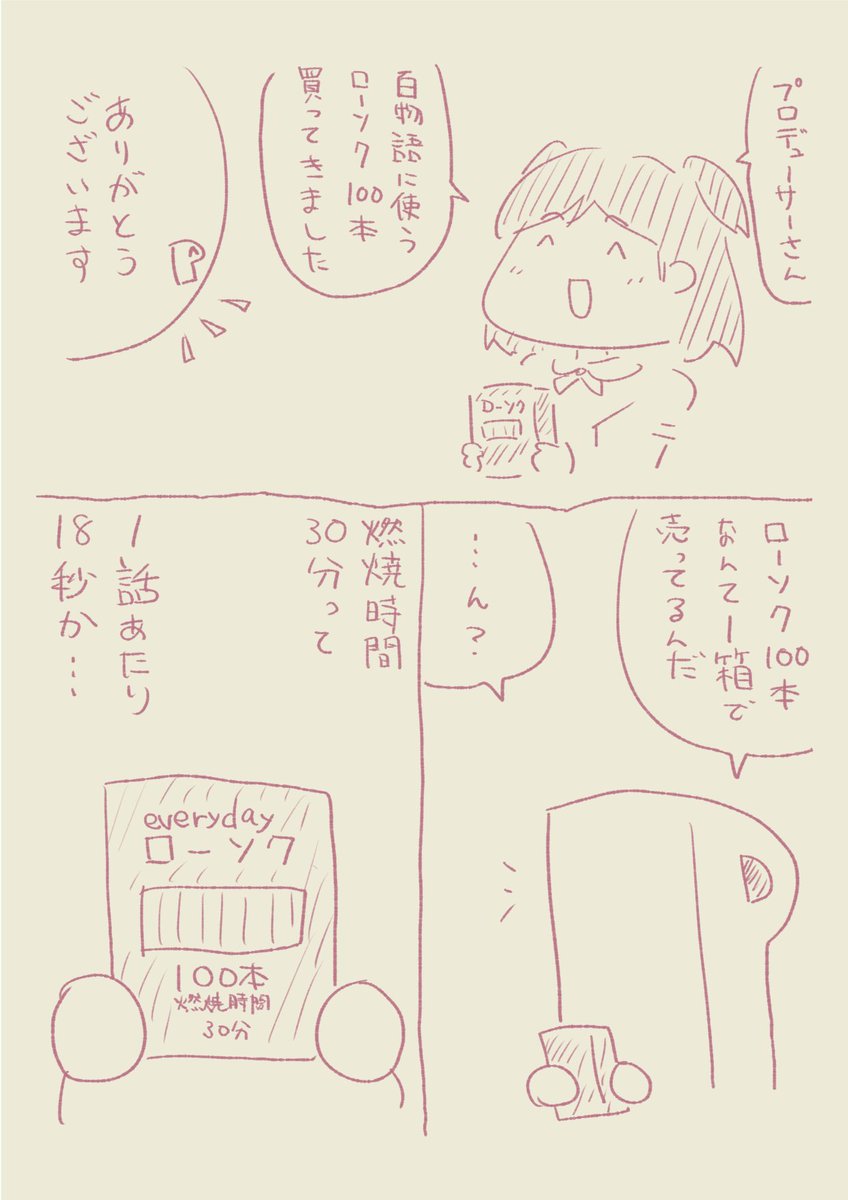 プロデューサーさん
百物語に使う
ローソク100本
買ってきました
ローソク
ありがとう
ございます
P
ローソク100本
なんて一箱で
売ってるんだ
…ん?
燃焼時間
30分って
1話あたり
18秒か…
everyday
ローソク
100本
燃焼時間
30分